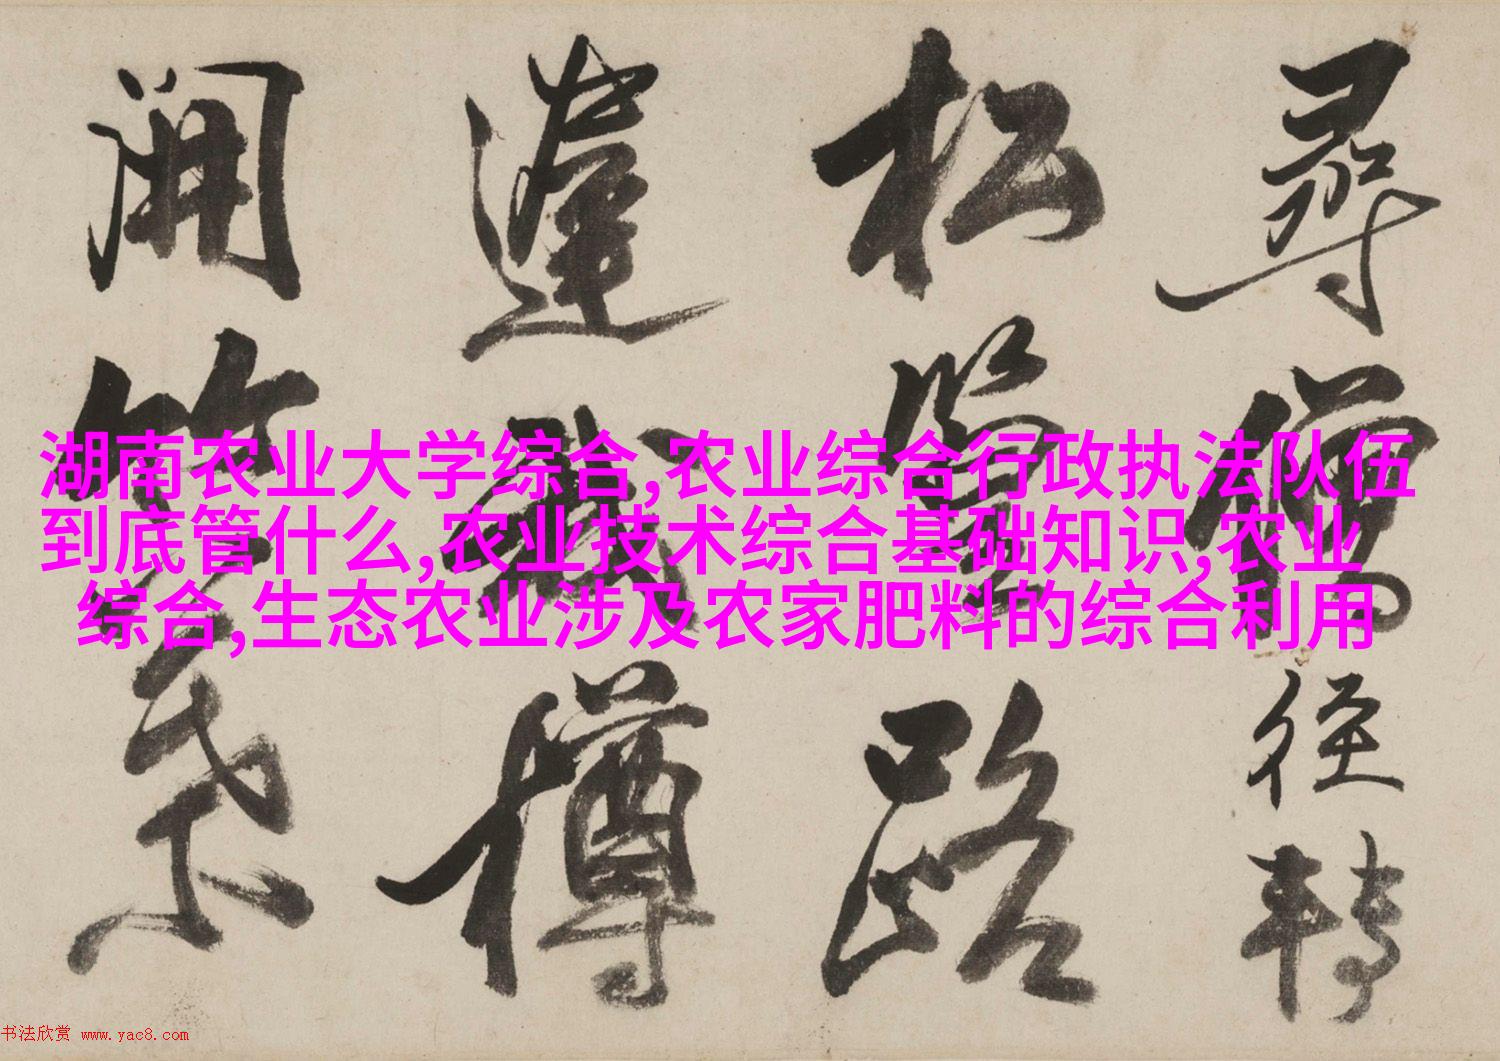 尋僧徑轉
松路
我樽
開
湖南农业大学综合,农业综合行政执法队伍
到底管什么,农业技术综合基础知识,农业
综合,生态农业涉及农家肥料的综合利用
书法欣赏 www.yac8.com